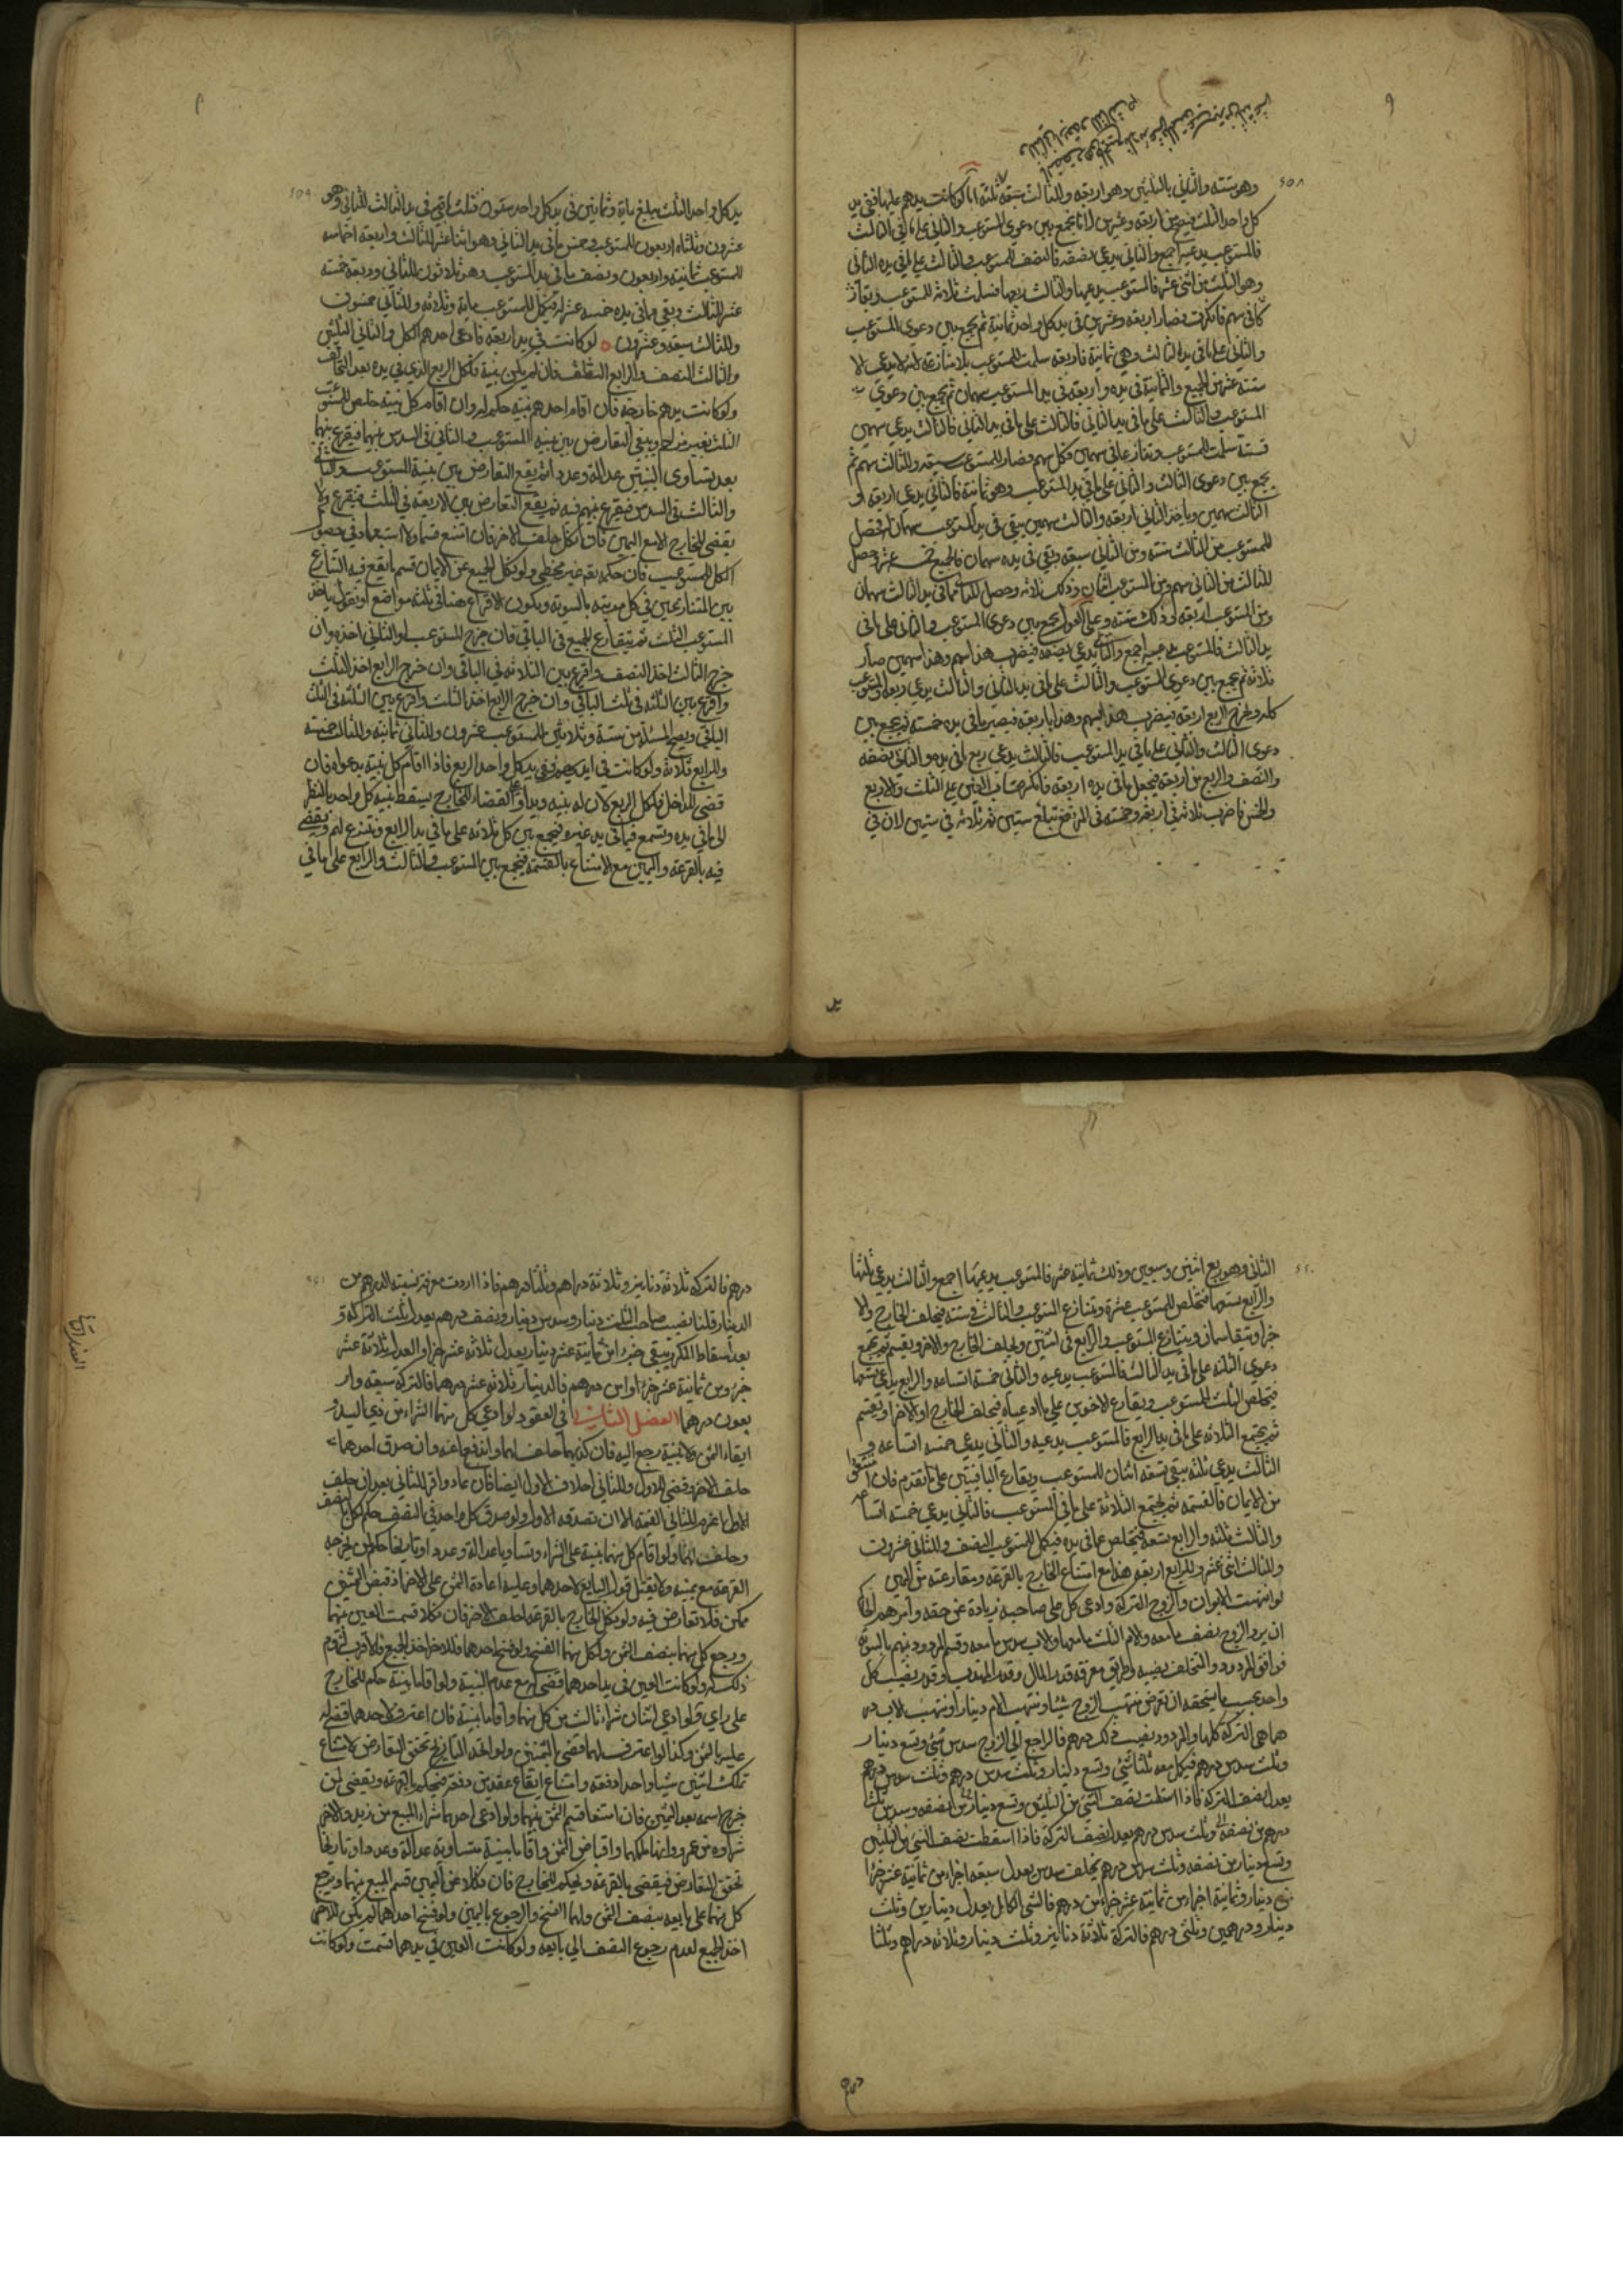 وهو ستة والثاني بالثلثين وهو اربعة وللثالث سبعة ثلثة اما لو كانت يدهم عليها ففي يد
كل واحد الثلث فيصح من اربعة وعشرين لانا نجمع بين دعوى المستوعب والثاني على ما في يد الثالث
فالمستوعب يدعيه اجمع والثاني يدعي نصفه فالنصف للمستوعب والثالث على ما في يده الثاني
وهو الثلث من اثنى عشر فالمستوعب يدعيها والثالث ربعها فسلمت ثلاثة للمستوعب وتعارضا
في سهم فانكرت فصار اربعة وعشرين في يد كل واحد ثمانية ثم نجمع بين دعوى المستوعب
والثاني على ما في يد الثالث وهي ثمانية فاربعة سلمت للمستوعب بلا منازعة لانه لا يدعي الا
ستة عشر من الجميع والثمانية في يده واربعة في يد المستوعب سهمان ثم نجمع بين دعوى
المستوعب والثالث على ما في يد الثاني فالثالث على ما في يد الثاني فالثالث يدعي سهمين
فستة سلمت للمستوعب وتنازعا في سهمين فكل سهم فصار للمستوعب سبعة وللثالث سهم ثم
نجمع بين دعوى الثالث والثاني على ما في يد المستوعب وهو ثمانية فالثاني يدعي اربعة و
الثالث سهمين وياخذ الثاني اربعة والثالث سهمين يبقى في يد المستوعب سهمان فحصل
للمستوعب من الثالث ستة ومن الثاني سبعة وبقي في يده سهمان فالجميع خمسة عشر وحصل
للثالث من الثاني سهم ومن المستوعب اثنان وذلك ثلاثة وحصل للثاني مما في يد الثالث سهمان
ومن المستوعب اربعة وذلك ستة وعلى العول نجمع بين دعوى المستوعب والثاني على ما في
يد الثالث فالمستوعب يدعيه اجمع والثاني يدعي نصفه فيضرب هذا بسهم وهذا بسهمين صار
ثلاثة ثم نجمع بين دعوى المستوعب والثالث على ما في يد الثاني والثالث يدعي ربعه والمستوعب
كله ومخرج الربع اربعة فيضرب هذا بسهم وهذا باربعة فيصير ما في يده خمسة ثم نجمع بين
دعوى الثالث والثاني على ما في يد المستوعب فالثالث يدعي ربع ما في يده والثاني نصفه
والنصف والربع من اربعة فنجعل ما في يده اربعة فانكر حساب العين على الثلث والاربع
والخمس فاضرب ثلاثة في اربعة وخمسة في المرتفع تبلغ ستين ثم ثلاثة في ستين لان في
يد كل واحد الثلث يبلغ مائة وثمانين في يد كل واحد ستون فثلث ما في يد الثالث للثاني وهو
عشرون وثلثاه اربعون للمستوعب وخمس ما في يد الثاني وهو اثنا عشر للثالث واربعة اخماسه
للمستوعب ثمانية واربعون ونصف ما في يد المستوعب وهو ثلاثون للثاني وربعه خمسة
عشر للثالث وبقي ما في يده خمسة عشر له فيكمل للمستوعب مائة وثلاثة وللثاني خمسون
وللثالث سبعة وعشرون ه لو كانت في يد اربعة فادعى احدهم الكل والثاني الثلثين
والثالث النصف والرابع الثلث فان لم يكن بينة فلكل الربع الذي في يده بعد التحالف
ولو كانت يدهم خارجة فان اقام احدهم بينة حكم له وان اقام كل بينة خلص للمستوعب
الثلث بغير مزاحم ويبقى التعارض بين بينة المستوعب والثاني في السدس بينهما فيقرع بينهما
بعد تساوى البينتين عدالة وعددا ثم يقع التعارض بين بينة المستوعب والثاني
والثالث في السدس فيقرع بينهم فيه ثم يقع التعارض بين الاربعة في الثلث فيقرع ولا
يقضى للخارج الا مع اليمين فان نكل حلف الاخر فان امتنع قسما ولا استبعاد في حصول
الكل للمستوعب فان حكم بقرعة غير مخطى ولو نكل الجميع عن الايمان قسم ما يقع فيه التنازع
بين المتنازعين في كل مرتبة بالسوية ويكون الاقراع هنا في ثلثة مواضع او نقول ياخذ
المستوعب الثلث ثم يتقارع الجميع في الباقي فان خرج المستوعب او الثاني اخذه وان
خرج الثالث اخذ النصف واقرع بين الثلاثة في الباقي وان خرج الرابع اخذ الثلث
واقرع بين الثلثة في ثلث الباقي وان خرج الرابع اخذ الثلث واقرع بين الثلثة في الثلث
الباقي ويصح المسئلة من ستة وثلاثين للمستوعب عشرون وللثاني ثمانية وللثالث خمسة
وللرابع ثلاثة ولو كانت في ايديهم ففي يد كل واحد الربع فاذا اقام كل بينة بدعواه فان
قضى للداخل فلكل الربع لان له بينة ويدا والقضاء للخارج يسقط بينة كل واحد بالنظر
الى ما في يده وتسمع فيما في يد غيره فيجمع بين كل ثلاثة على ما في يد الرابع وينتزع لهم ويقضى
فيه بالقرعة واليمين مع الامتناع بالقسمة فيجمع بين المستوعب والثالث والرابع على ما في
الثاني وهو ربع اثنين وسبعين وذلك ثمانية عشر فالمستوعب يدعيها اجمع والثالث يدعي ثلثها
والرابع يدعي تسعها فتخلص للمستوعب عشرة ويتنازع المستوعب والثالث في ستة فيحلف الخارج والا
خر او يتقاسمان ويتنازع المستوعب والرابع في اثنين ويحلف الخارج والاخر ويقسم ثم تجمع
دعوى الثلثة على ما في يد الثالث فالمستوعب يدعيه والثاني خمسة اتساعه والرابع يدعي تسعها
فيخلص الثلث للمستوعب ويقارع الاخرين على ما ادعياه فيحلف الخارج او الاخر او يقسم
ثم تجمع الثلاثة على ما في يد الرابع فالمستوعب يدعيه والثاني يدعي خمسة اتساعه و
الثالث يدعي ثلثه يبقى تسعه اثنان للمستوعب ويقارع الباقيين على ما تقدم فان امتنعوا
من الايمان فالقسمة ثم تجتمع الثلاثة على ما في يد المستوعب فالثاني يدعي خمسة اتساعه
والثالث ثلثه والرابع تسعه فيخلص عما في يده فيكمل للمستوعب النصف وللثاني عشرون
وللثالث اثنى عشر وللرابع اربعة هذا مع امتناع الخارج بالقرعة ومقارعته من اليمين
لو انتهب الابوان والزوج التركة وادعى كل على صاحبه زيادة عن حقه وامرهم الحاكم
ان يرد الزوج نصف ما معه والام الثلث ما معها والاب سدس ما معه وقسم المردود بينهم بالسوية
فوافق المردود والتخلف نصيبه فطريق معرفة قدر المال وقدر المنتهب وقدر نصيب كل
واحد بحسب ما يستحقه ان تفرض منتهب الزوج شيئا ومنتهب الام دينارا ومنتهب الاب در
هما هي التركة كلها والمردود نصيب ذلك درهم فالراجع الى الزوج سدس شيء وتسع دينار
وثلث سدس درهم فيكمل معه ثلثا شيء وتسع دينار وثلث سدس درهم وثلث سدس درهم
يعدل نصف التركة فاذا اسقطت نصف الشيء من الثلثين وتسع دينار من نصفه وسدس ثلث
درهم من نصفه وثلث سدس درهم يعدل نصف التركة فاذا اسقطت نصف الشيء من الثلثين
وتسع دينار من نصفه وثلث سدس درهم تخلف سدس يعدل سبعة اجزاء من ثمانية عشر جزءا
من دينار وثمانية اجزاء من ثمانية عشر جزءا من درهم فالشيء الكامل يعدل دينارين وثلث
دينار ودرهمين وثلثي درهم فالتركة ثلاثة دنانير وثلث دينار وثلاثة دراهم وثلثا
درهم فالتركة ثلاثة دنانير وثلاثة دراهم وثلثا درهم فاذا اردت معرفة نسبة الدرهم من
الدينار قلنا نصيب صاحب الثلث دينار وسدس دينار ونصف درهم يعدل ثلث التركة و
بعد اسقاط المكرر يبقى جزء من ثمانية عشر دينار يعدل ثلاثة عشر جزءا والعدل ثلاثة عشر
جزء من ثمانية عشر جزءا من درهم فالدينار ثلاثة عشر درهما فالتركة سبعة وار
بعون درهما الفصل الثالث في العقود لو ادعى كل منهما الشراء من ذي اليد و
ايفاء الثمن ولا بينة رجع اليه فان كذبهما حلف لهما واندفعا عنه وان صدق احدهما
حلف الاخر وقضى للاول وللثاني احلاف الاول ايضا فان عاد واقر للثاني بعد ان حلف
الاول اغرم للثاني القيمة الا ان يصدقه الاول ولو صدق كل واحد في النصف حكم لكل بنصف
وحلف لهما ولو اقام كل منهما بينة على الشراء وتساويا عدالة وعددا وتاريخا حكم لمن يخرجه
القرعة مع يمينه ولا يقبل قول البايع لاحدهما وعليه اعادة الثمن على الاخر اذ قبض الثمنين
ممكن فلا تعارض فيه ولو نكل الخارج بالقرعة احلف الاخر فان نكلا قسمت العين بينهما
ورجع كل منهما بنصف الثمن ولكل منهما الفسخ ولو فسخ احدهما فللاخر اخذ الجميع والاقرب لزوم
ذلك له ولو كانت العين في يد احدهما قضى له مع عدم البينة ولو اقاما بينة حكم للخارج
على راي ولو ادعى اثنان شراء ثالث من كل منهما واقاما بينة فان اعترف لاحدهما قضى له
عليه بالثمن وكذا لو اعترف لهما قضى بالثمنين ولو اتحد التاريخ تحقق التعارض لامتناع
تملك اثنين شيئا واحدا دفعة وامتناع ايقاع عقدين دفعة فيحكم بالقرعة ويقضى لمن
خرج اسمه بعد اليمين فان امتنعا قسم الثمن بينهما ولو ادعى احدهما شراء المبيع من زيد والاخر
شراءه من عمرو وانها ملكهما واقباض الثمن واقاما بينة متساوية عدالة وعددا وتاريخا
تحقق التعارض فيقضى بالقرعة ويحكم للخارج فان نكلا عن اليمين قسم المبيع بينهما ويرجع
كل منهما على بايعه بنصف الثمن ولهما الفسخ والرجوع بالثمن ولو فسخ احدهما لم يكن للاخر
اخذ الجميع لعدم رجوع النصف الى بايعه ولو كانت العين في يدهما قسمت ولو كانت